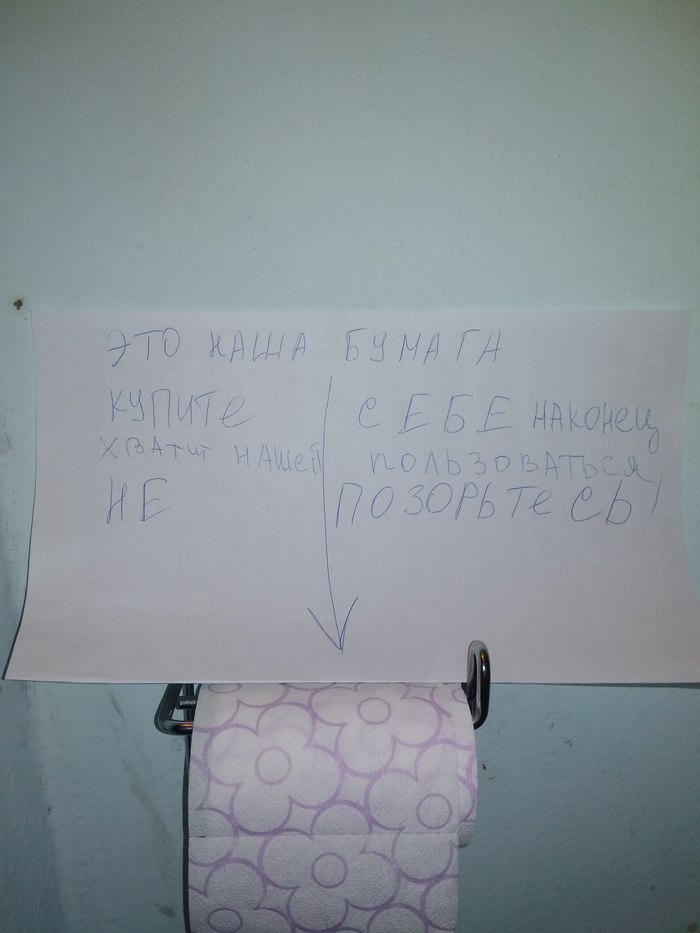 ЭТО НАША БУМАГА
КУПИТЕ СЕБЕ НАКОНЕЦ
ХВАТИТ НАШЕЙ ПОЛЬЗОВАТЬСЯ
НЕ ПОЗОРЬТЕСЬ!